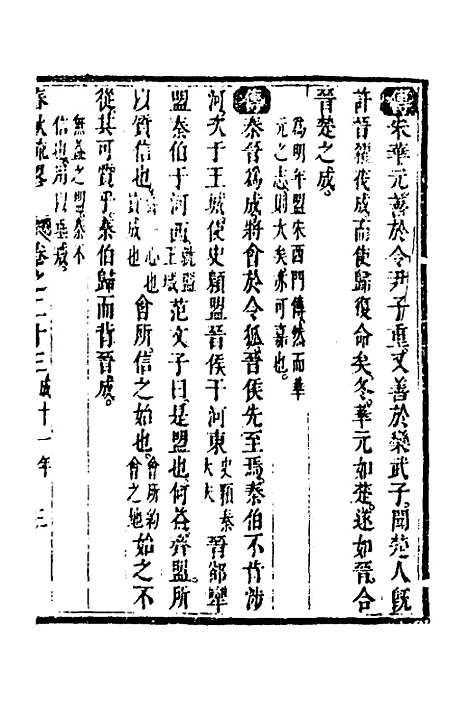 傳宋華元善於令尹子重又善於欒武子聞楚人既
許晉糴茷成而使歸復命矣冬華元如楚遂如晉合
晉楚之成
爲明年盟宋西門傳然而華
元之志則大矣亦可嘉也
傳秦晉爲成將會於令狐晉侯先至焉秦伯不肯涉
河次于王城使史顆盟晉侯于河東史顆秦大夫晉郤犨
盟秦伯于河西就盟王城范文子曰是盟也何益齊盟所
以質信也齊一心也質成也會所信之始也會所約會之地始之不
從其可質乎秦伯歸而背晉成
無益之盟秦不
信也
春秋疏畧 卷之二十三成十一年 三